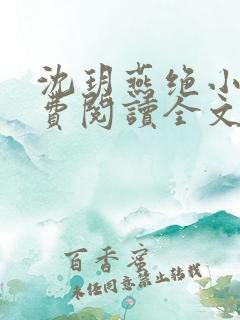 沈玥燕绝小
費閱讀全文
百香蜜
未经同意禁止转载